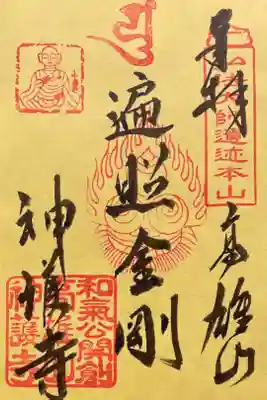 弘法大師遺迹本山
高雄山
遍照金剛
神護寺
和氣公開創
高雄山
神護寺